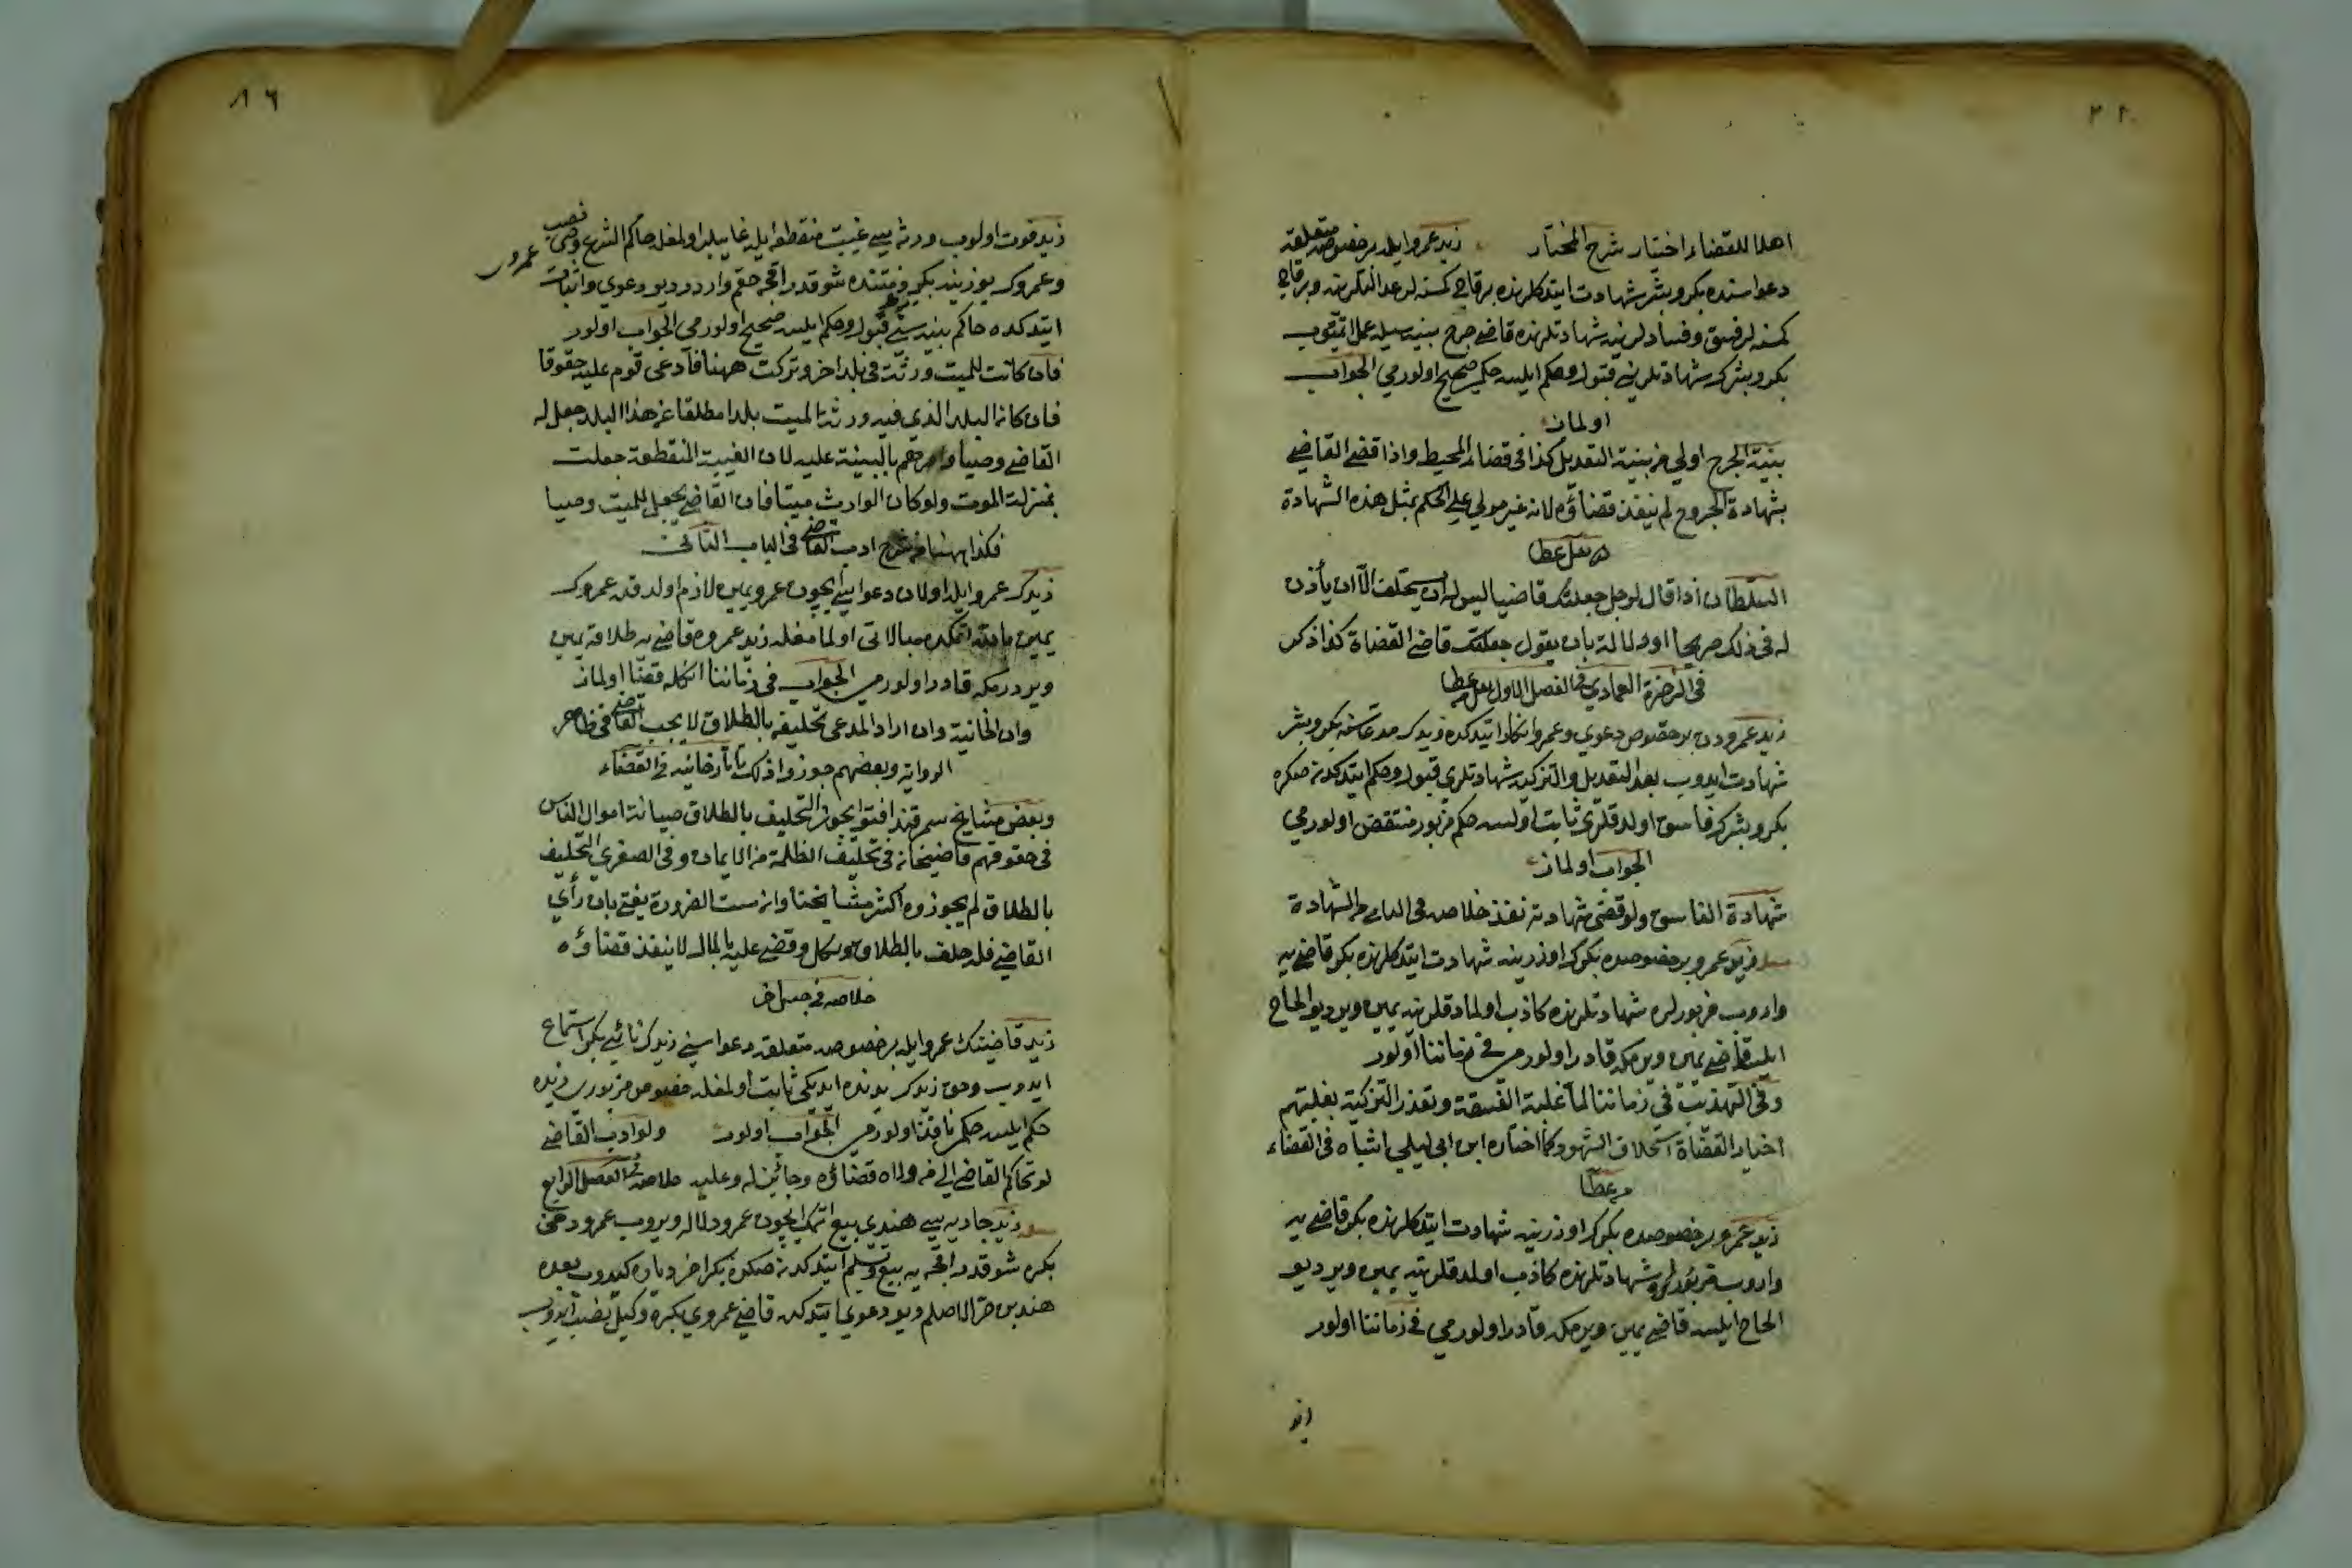 ٢٢
اهلا للقضاء اختيار شرح المختار زيد عمرو ايله بر خصوصه متعلقه
دعواسنده بكر و بشر شهادت ايتدكلرنده بر قاچ كمسنه لر عدالتلرينه و بر قاچ
كمسنه لر فسق و فسادلرينه شهادتلرنده قاضى جرح بينه سيله عمل اتميوب
بكر و بشرك شهادتلرينى قبول و حكم ايلسه حكمى صحيح اولورمى الجواب
اولماز
بينة الجرح اولى من بينة التعديل كذا فى قضاء المحيط واذا قضى القاضى
بشهادة المجروح لم ينفذ قضاؤه لانه غير مولى على الحكم بمثل هذه الشهادة
السلطان اذا قال لرجل جعلتك قاضيا ليس له ان يستخلف الا ان يأذن
له فى ذلك صريحا او دلالة بان يقول جعلتك قاضى القضاة كذا ذكر
فى الفصل الاول
زيد عمرودن بر خصوص دعوى و عمرو انكار ايتدكده زيدك مدعاسنه بكر و بشر
شهادت ايدوب بعد التعديل والتزكيه شهادتلرى قبول و حكم ايتدكدنصكره
بكر و بشرك فاسق اولدقلرى ثابت اولسه حكم مزبور منتقض اولورمى
الجواب اولماز
شهادة الفاسق ولو قضى بشهادته نفذ خلاصه فى الشهادة
زيد عمرو بر خصوصده بكرك اوزرينه شهادت ايتدكلرنده بكر قاضى يه
واروب مزبورلره شهادتلرنده كاذب اولمادقلرينه يمين ويرديو الحاح
ايلسه قاضى يمين ويرمكه قادر اولورمى فى زماننا اولور
وفى التهذيب فى زماننا لما غلبة الفسقة وتعذر التزكية بغلبتهم
اختار القضاة استحلاف الشهود كما اختاره ابن ابى ليلى اشباه فى القضاء
زيد عمرو بر خصوصده بكرك اوزرينه شهادت ايتدكلرنده بكر قاضى يه
واروب مزبورلر شهادتلرنده كاذب اولمدقلرينه يمين ويرديو
الحاح ايلسه قاضى يمين ويرمكه قادر اولورمى فى زماننا اولور
٨٦
زيد فوت اولوب ورثه سى غيبت منقطعه ايله غايبلر اولمغله حاكم الشرع وصى نصب
وعمروك يوزينه بكر ذمتنده شو قدر اقچه حقم واردر ديو دعوى واثبات عمرو
ايتدكده حاكم بينه سنى قبول وحكم ايلسه صحيح اولورمى الجواب اولور
فان كانت للميت ورثة فى بلد اخر وتركت ههنا فادعى قوم عليه حقوقا
فان كان البلد الذى فيه ورثة الميت بلدا مطلقا عن هذا البلد جعل له
القاضى وصيا بالبينة عليه لان الغيبة المنقطعة جعلت
بمنزلة الموت ولو كان الوارث ميتا فان القاضى يجعل للميت وصيا
فكذا ههنا من شرح ادب القاضى فى الباب الثانى
زيدك عمرو ايله اولان دعواسى ايچون عمرو يمين لازم اولدقده عمروك
يمين اتمكده مبالاتى اولمامغله زيد عمروه قاضى يه طلاقه يمين
ويردرمكه قادر اولورمى الجواب فى زماننا اولماز
وان اراد المدعى تحليفه بالطلاق لا يجب القاضى فى ظاهر
الرواية وبعضهم جوزوا ذلك تاتارخانيه فى القضاء
وبعض مشايخ سمرقند افتوا بجواز التحليف بالطلاق صيانة اموال الناس
فى حقوقهم قاضيخان فى تحليف الظلمة من الايمان وفى الصغرى التحليف
بالطلاق لم يجوزه اكثر مشايخنا وان مست الضرورة يفتى بان رأى
القاضى فلو حلف بالطلاق ونكل وقضى عليه بالمال لا ينفذ قضاؤه
خلاصه فى
زيد قاضينك عمرو ايله بر خصوصه متعلقه دعواسنى زيدك نائبى بكر استماع
ايدوب وحق زيدك يدنده ايديكى ثابت اولمغله خصوص مزبورى زيده
حكم ايلسه حكمى نافذ اولورمى الجواب اولور ولو ادب القاضى
لو تحاكم القاضى الى من ولاه قضاؤه وجائز له وعليه خلاصه فى الفصل الرابع
زيد جاريه سى هندى بيع اتمك ايچون عمرو دلاله ويروب عمرو دخى
بكره شو قدر اقچه يه بيع وتسليم ايتدكدنصكره بكر اخر دياره كيدوب بعده
هند بن حر الاصلم ديو دعوى ايتدكده قاضى عمروى بكره وكيل نصب ايدوب